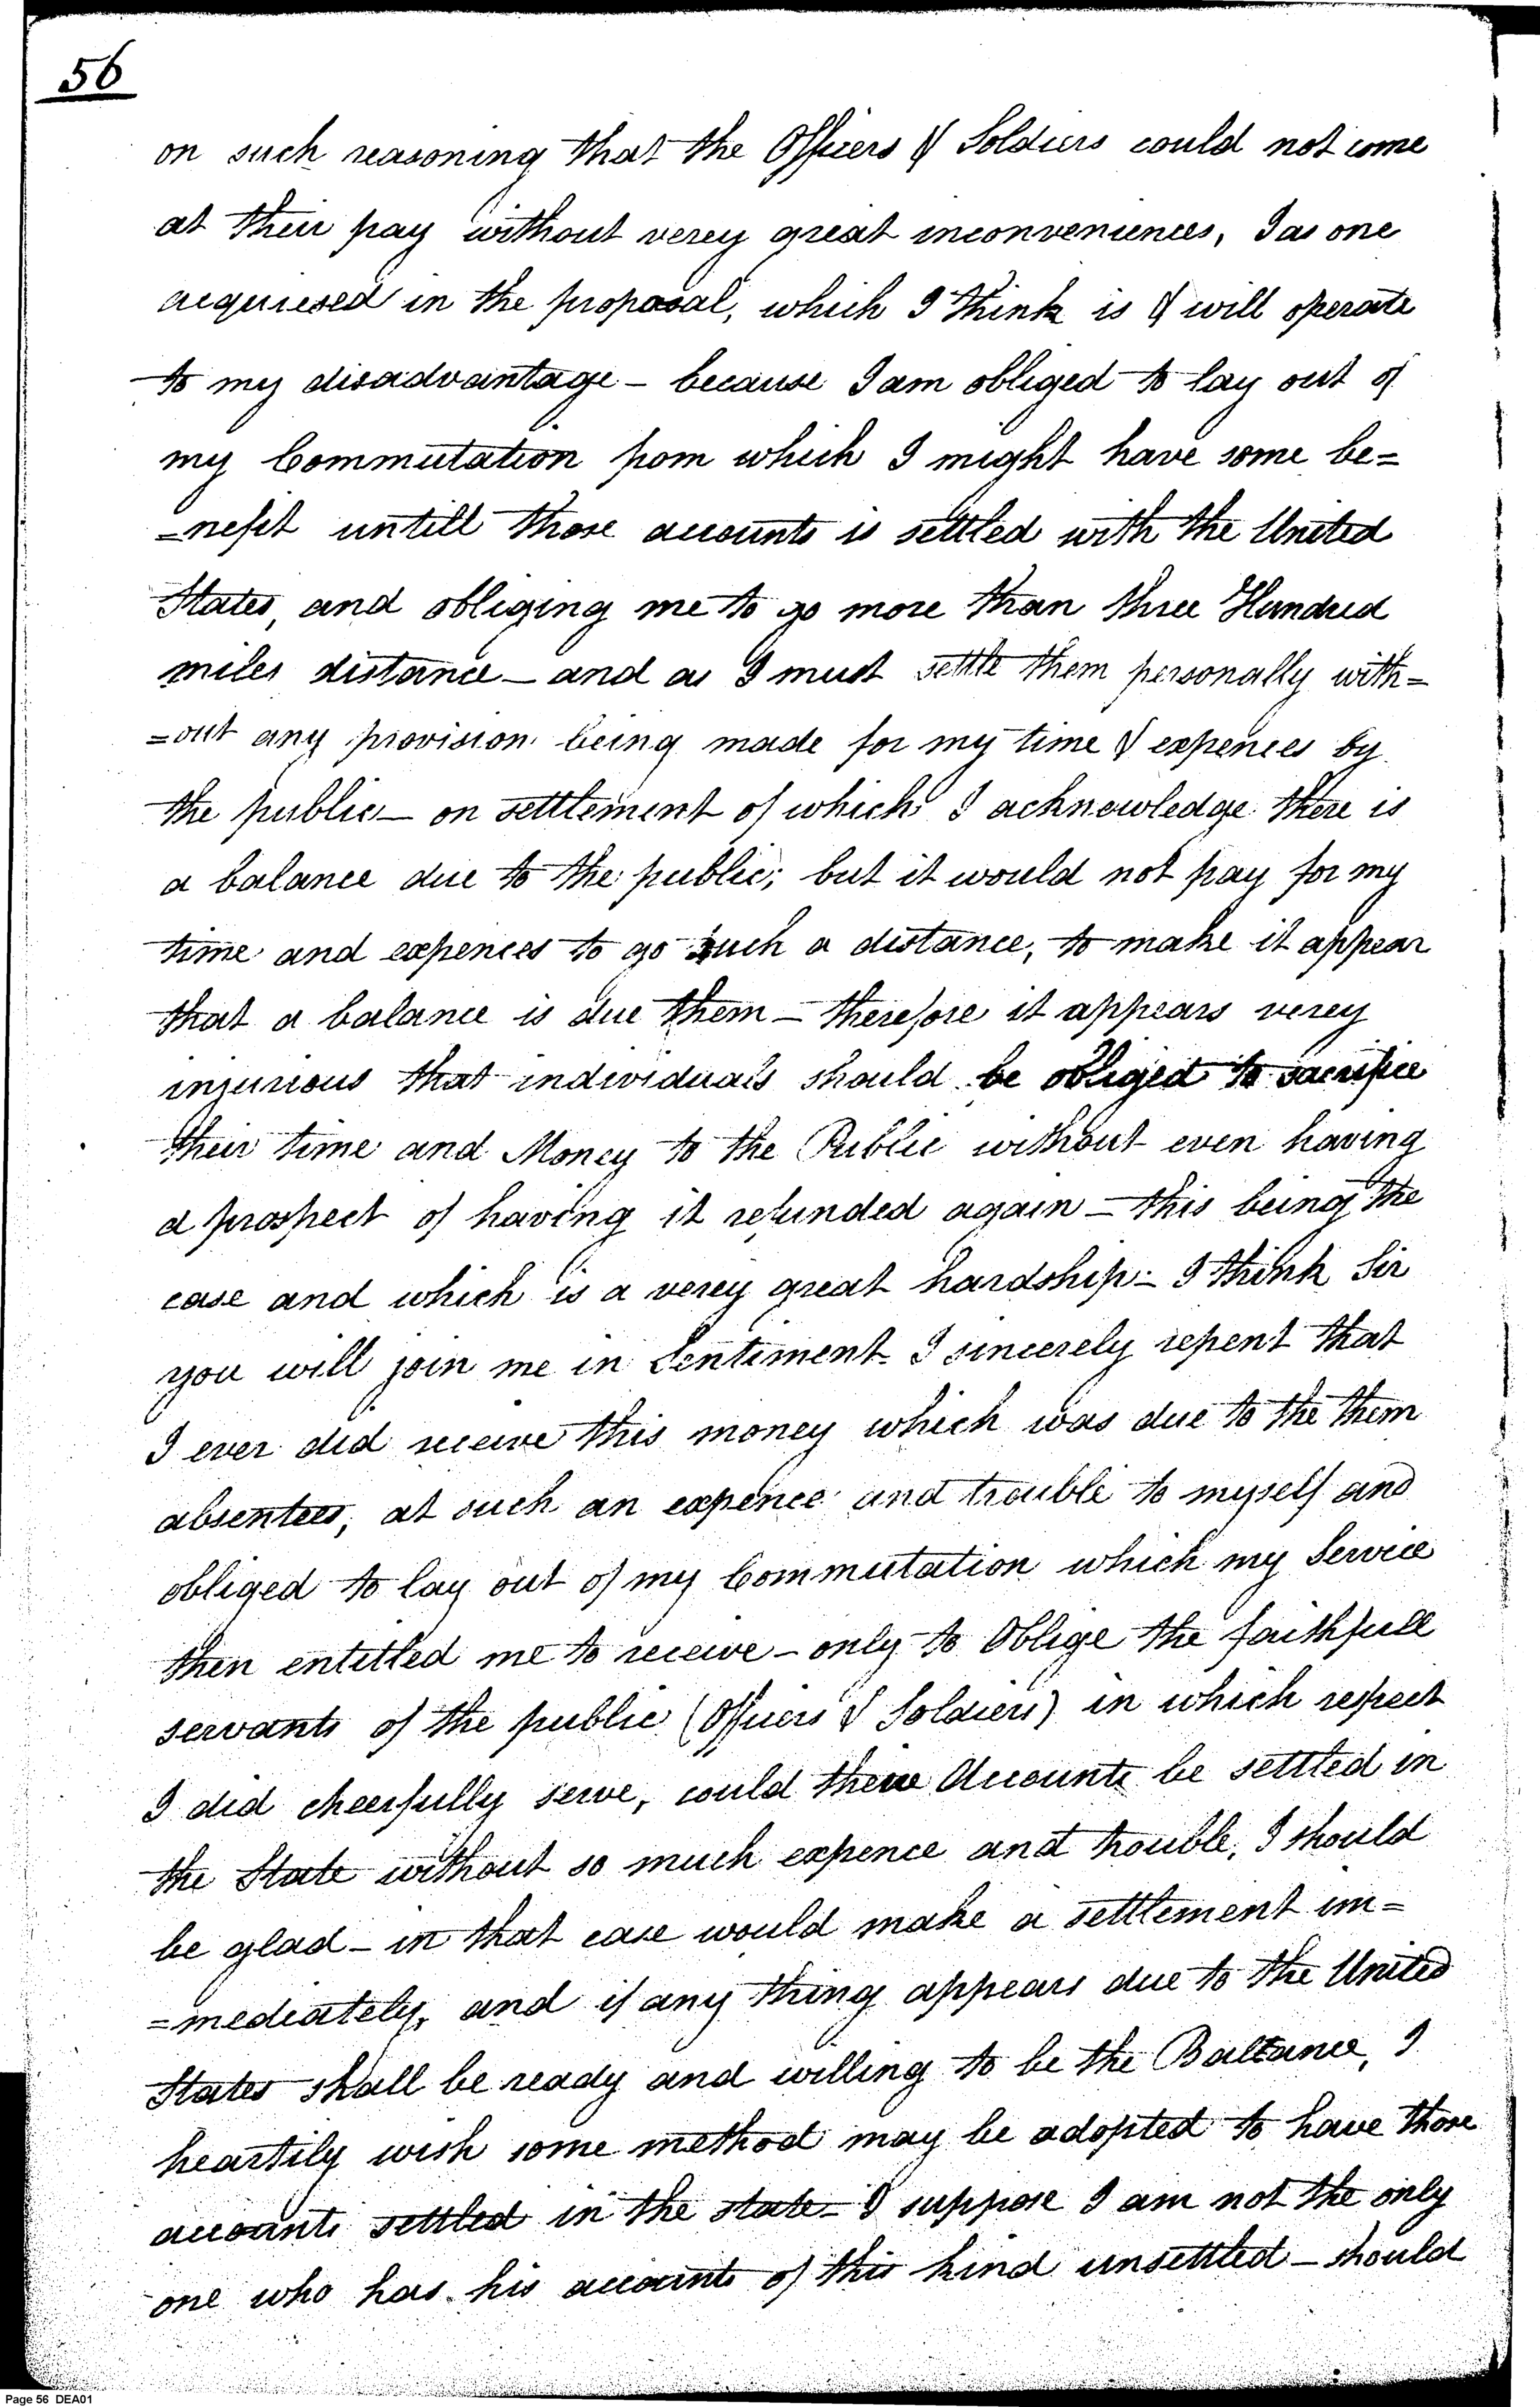 56
on such reasoning that the Officers & Soldiers could not come
at their pay without verey great inconveniences, I as one
acquiesed in the proposal, which I think is & will operate
to my disadvantage – because I am obliged to lay out of
my Commutation from which I might have some be=
=nefit untill those accounts is settled with the United
States, and obliging me to go more than three Hundred
miles distance – and as I must settle them personally with=
=out any provision being made for my time & expences by
the public – on settlement of which I acknowledge there is
a balance due to the public; but it would not pay for my
time and expences to go such a distance, to make it appear
that a balance is due them – therefore it appears verey
injurious that individuals should be obliged to sacrifice
their time and Money to the Public without even having
a prospect of having it refunded again – this being the
case and which is a verey great hardship – I think Sir
you will join me in Sentiment. I sincerely repent that
I ever did receive this money which was due to the them
absentees, at such an expence and trouble to myself and
obliged to lay out of my Commutation which my Service
then entitled me to receive – only to Oblige the faithfull
servants of the public (Officers & Soldiers) in which respect
I did cheerfully serve, could these Accounts be settled in
the State without so much expence and trouble, I should
be glad – in that case would make a settlement im=
=mediately, and if any thing appears due to the United
States shall be ready and willing to be the Ballance, I
heartily wish some method may be adopted to have those
accounts settled in the state – I suppose I am not the only
one who has his accounts of this kind unsettled – should
Page 56 DEA01